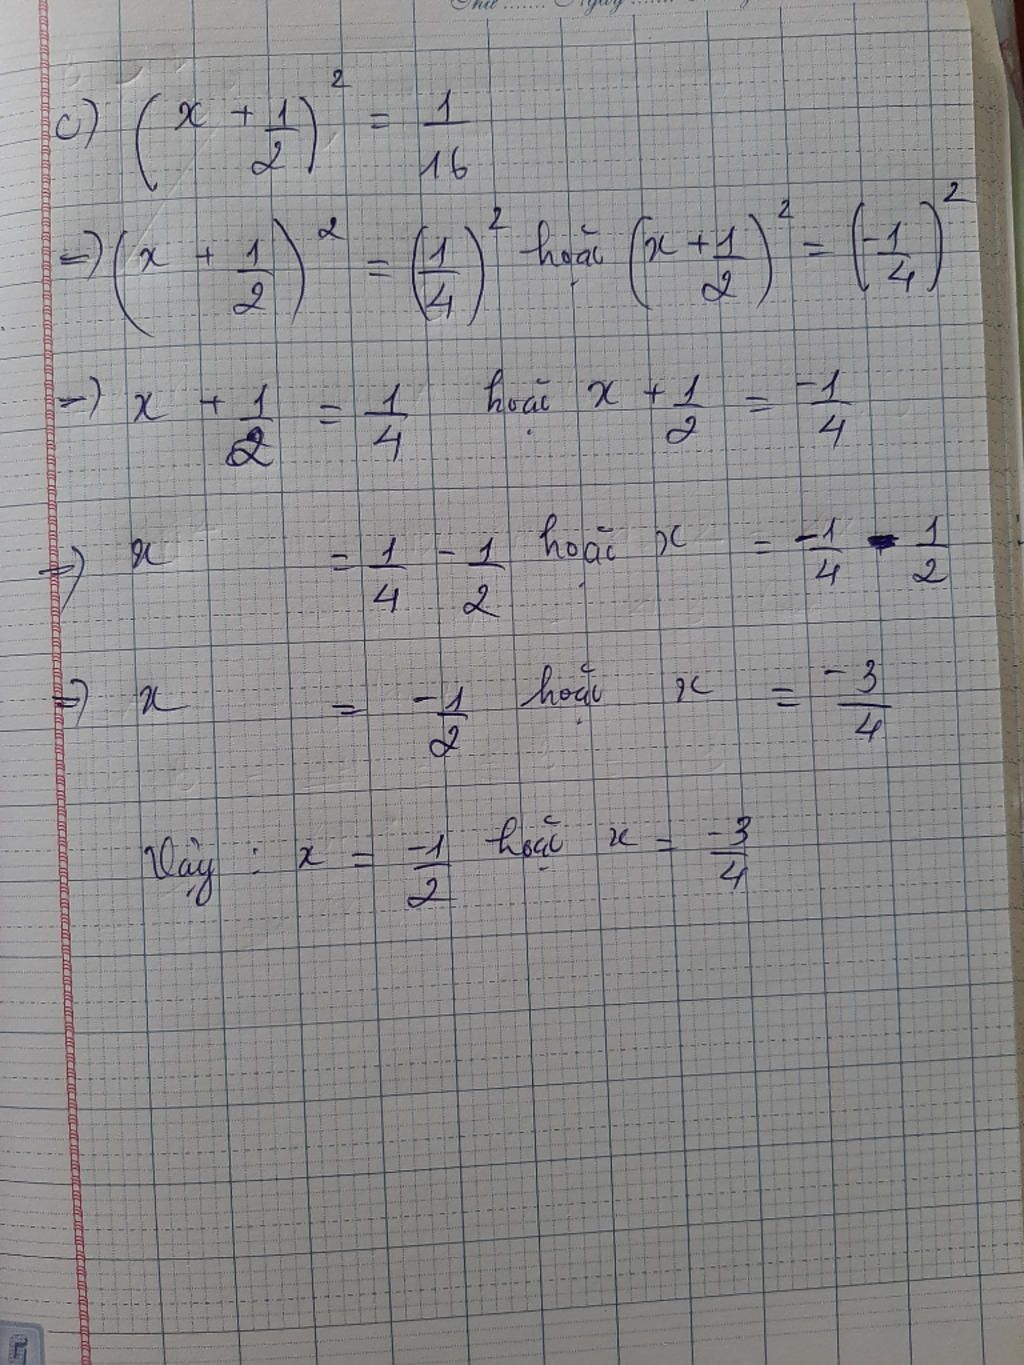 Thứ ....... Ngày .......
c) (x + 1/2)² = 1/16
=> (x + 1/2)² = (1/4)² hoặc (x + 1/2)² = (-1/4)²
=> x + 1/2 = 1/4 hoặc x + 1/2 = -1/4
=> x = 1/4 - 1/2 hoặc x = -1/4 - 1/2
=> x = -1/2 hoặc x = -3/4
Vậy : x = -1/2 hoặc x = -3/4